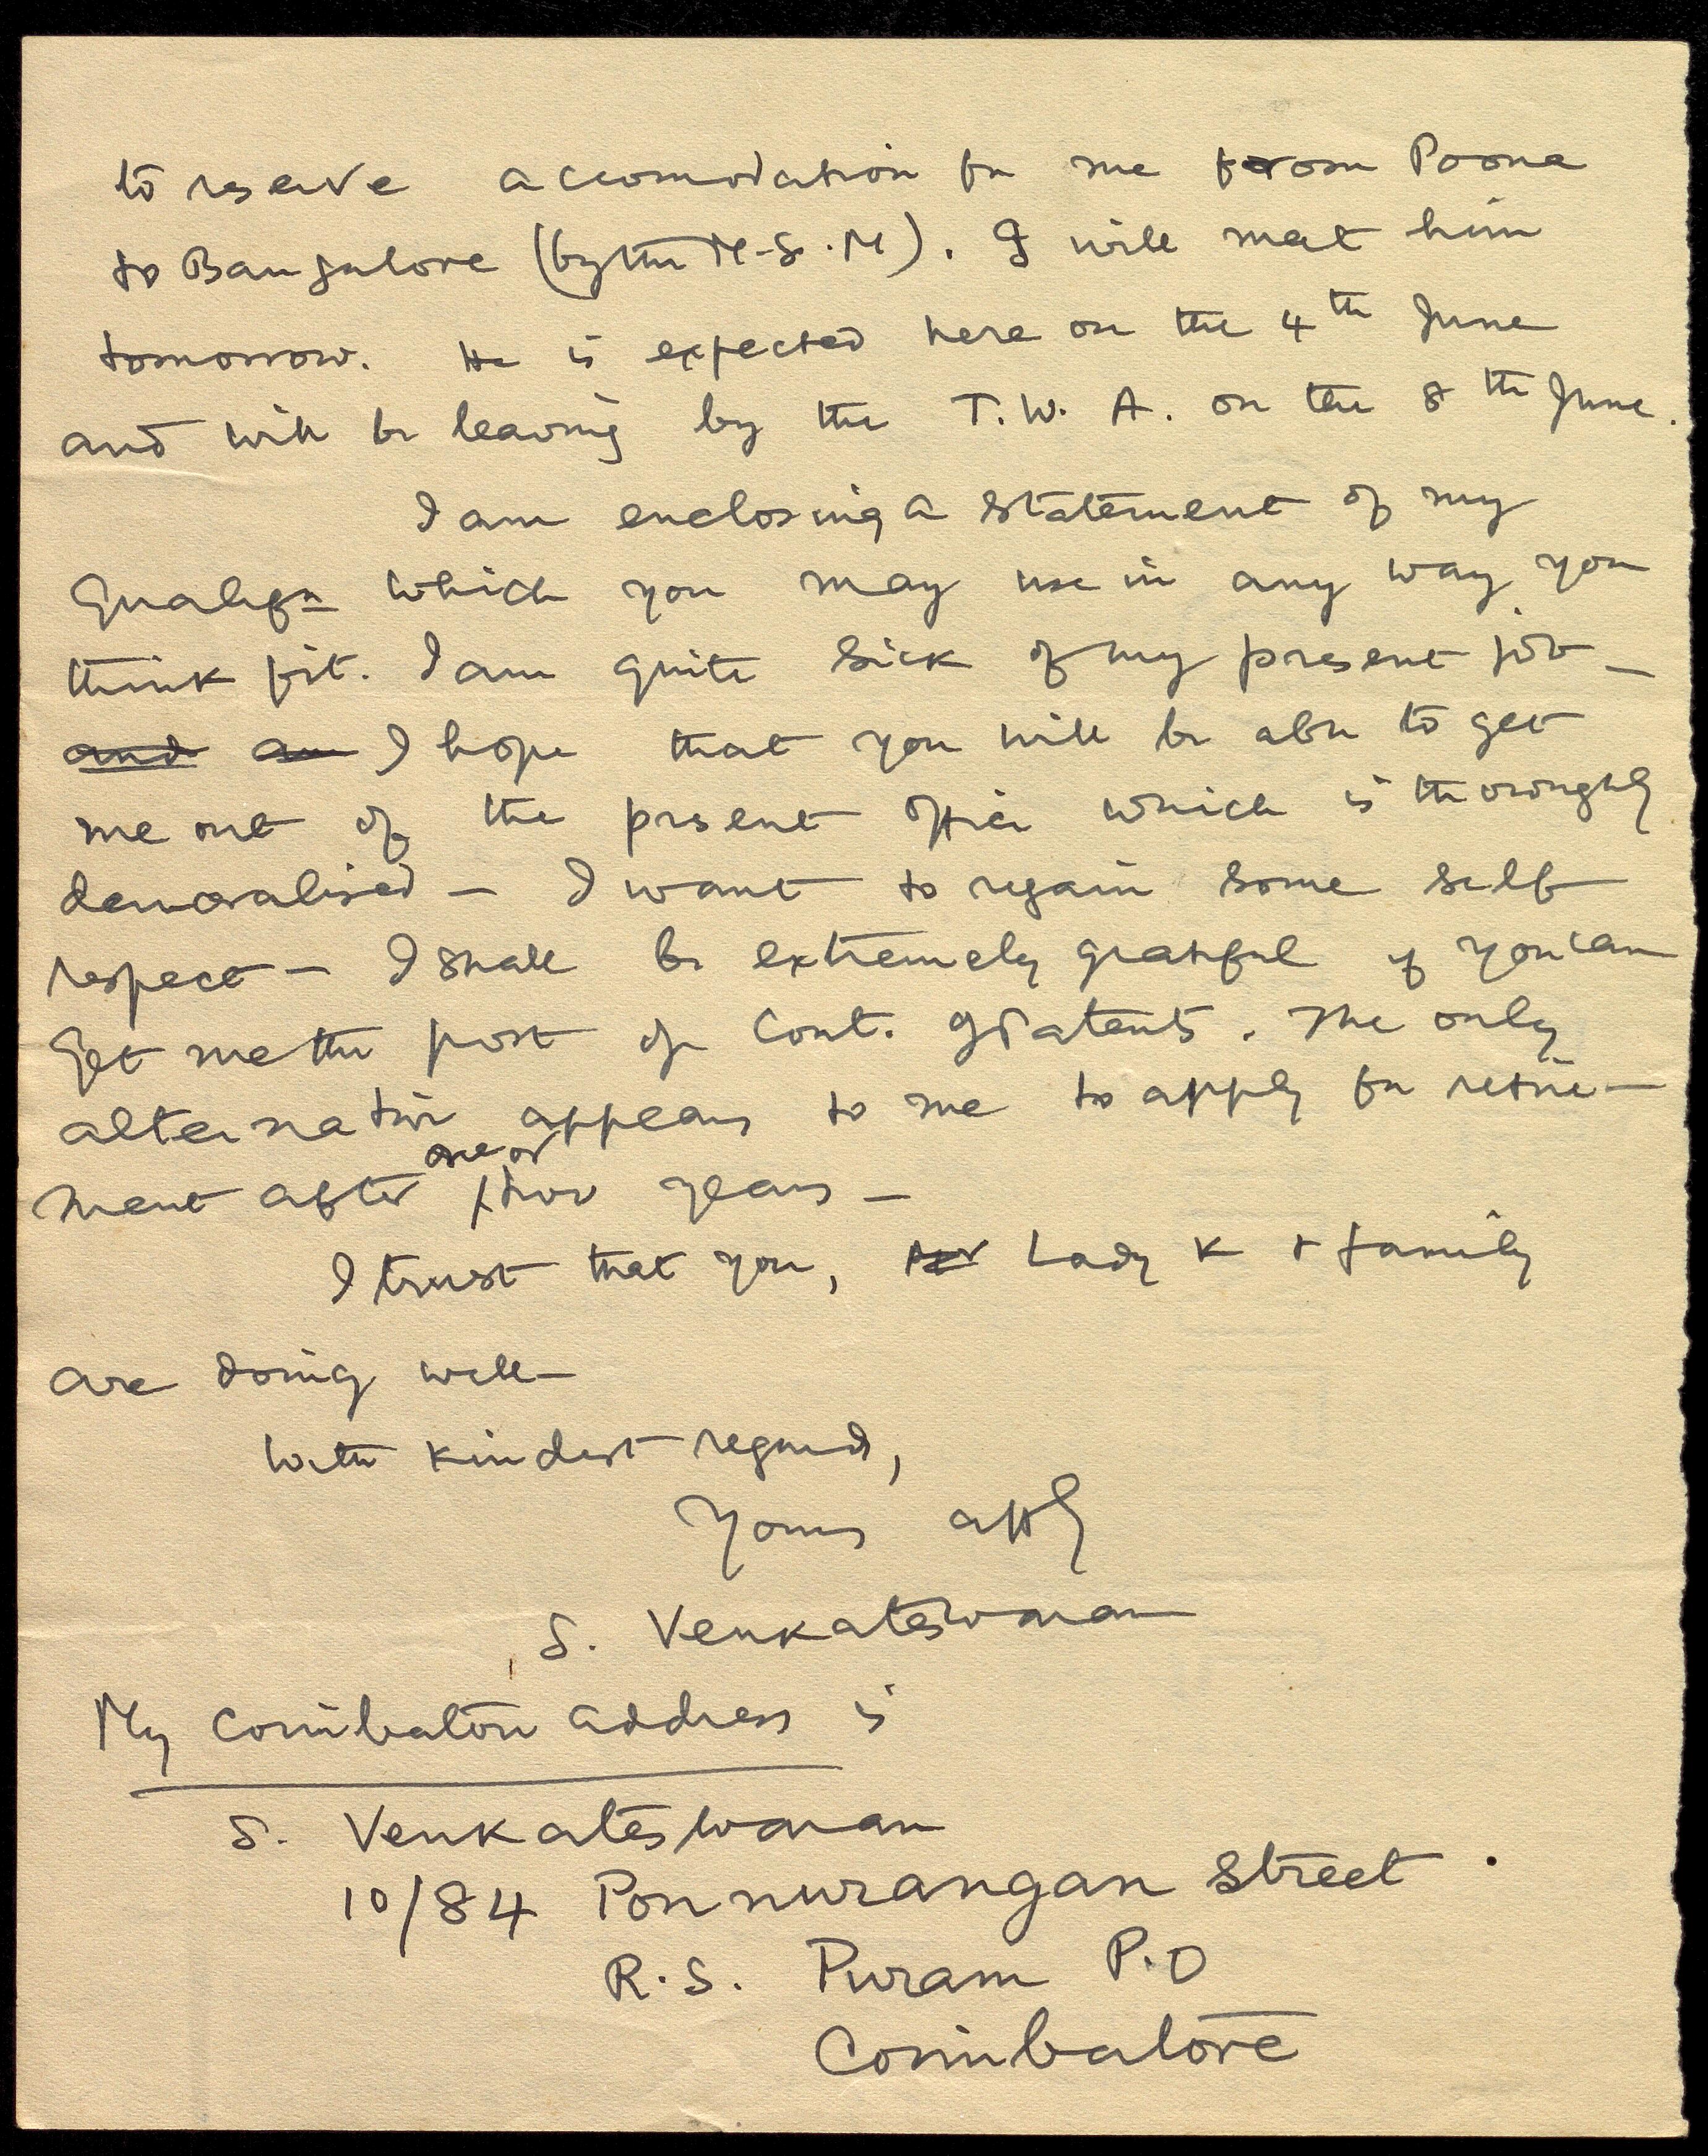 to reserve accomodation for me from Poona
to Bangalore (by the M.S.M). I will meet him
tomorrow. He is expected here on the 4th June
and will be leaving by the T.W.A. on the 8th June.
I am enclosing a statement of my
Qualifn which you may use in any way you
think fit. I am quite sick of my present job —
and am I hope that you will be able to get
me out of the present office which is thoroughly
demoralised — I want to regain some self
respect — I shall be extremely grateful if you can
get me the post of Cont. of Patents. The only
alternative appears to me to apply for retire-
one or
ment after two years —
I trust that you, Lady K & family
are doing well —
With kindest regards,
Yours affly
S. Venkateswaran
My Coimbatore address is
S. Venkateswaran
10/84 Ponnurangan Street.
R.S. Puram P.O
Coimbatore